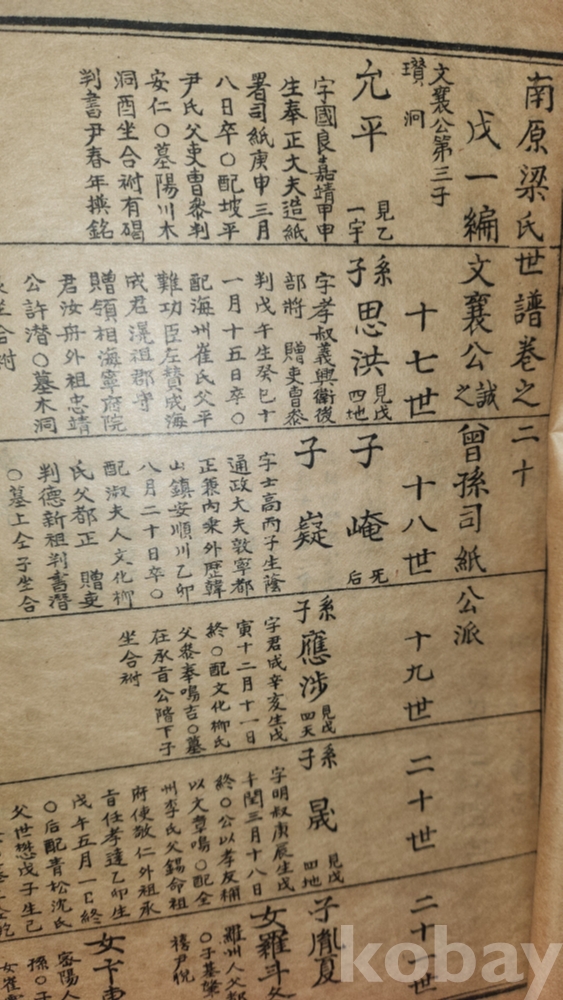 南原梁氏世譜卷之二十
戊一編 文襄公誠之曾孫司紙公派
十七世
十八世
十九世
二十世
二十一世
文襄公第三子
瓚 洞
允平 見乙一宇
字國良嘉靖甲申
生奉正大夫造紙
署司紙庚申三月
八日卒○配坡平
尹氏父吏曹叅判
安仁○墓陽川木
洞酉坐合祔有碣
判書尹春年撰銘
孫
子 思洪 見戊四地
字孝叔義興衛後
部將 贈吏曹叅
判戊午生癸巳十
一月十五日卒○
配海州崔氏父平
難功臣左贊成海
成君滉祖郡守
贈領相海寧府院
君汝舟外祖忠靖
公許潛○墓木洞
坐合祔
子 崦 死后
子 嶷
字士高丙子生蔭
通政大夫敦寧都
正兼內乘外歷韓
山鎮安順川乙卯
八月二十日卒○
配淑夫人文化柳
氏父都正 贈吏
判德新祖判書潛
○墓上仝子坐合
孫
子 應涉 見戊四天
字君成辛亥生戊
寅十二月十一日
終○配文化柳氏
父叅奉鳴吉○墓
在承旨公階下子
坐合祔
孫
子 晟 見戊四地
字明叔庚辰生戊
午閏三月十八日
終○公以孝友稱
以文章鳴○配全
州李氏父錫命祖
府使敬仁外祖承
旨任孝達乙卯生
戊午五月一日終
○后配青松沈氏
父世懋戊子生己
子胤夏
女羅斗
羅州人父
○子基肇
禧尹悅
女卞
密陽人
孫○子
女崔
kobay